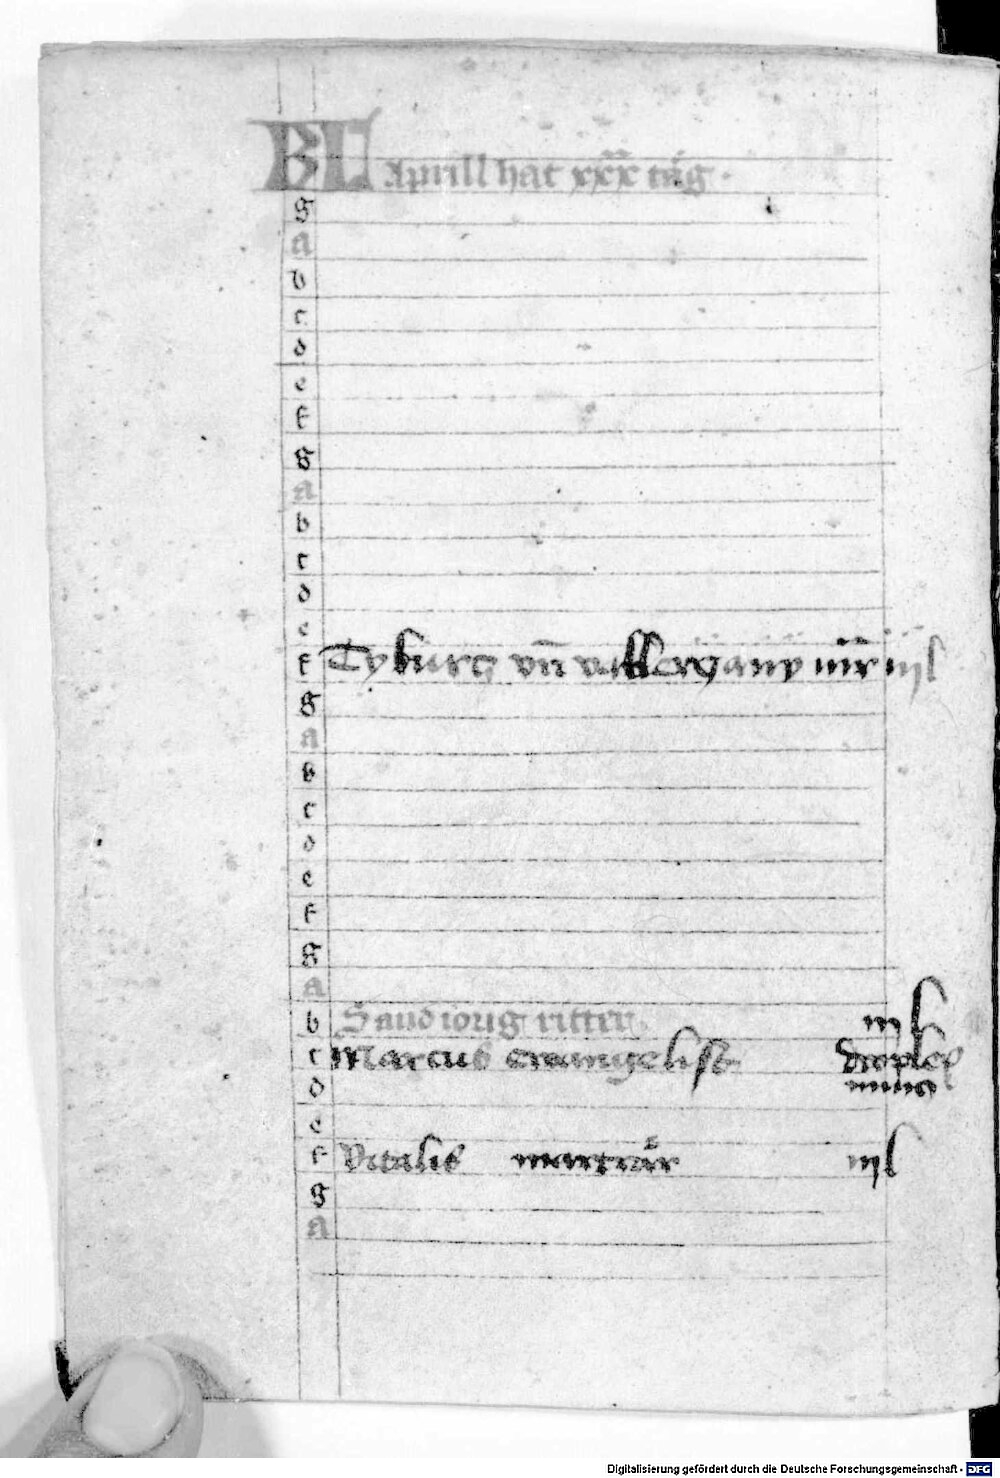 KL Aprill hat xxx tag
g
a
b
c
d
e
f
g
a
b
c
d
e
f Tyburtz vñ
g
a
b
c
d
e
f
g
a
b Sand iorig ritter iij l
c Marcus ewangelist duplex
d minus
e
f Vitalis marträr iij l
g
a
Digitalisierung gefördert durch die Deutsche Forschungsgemeinschaft - DFG